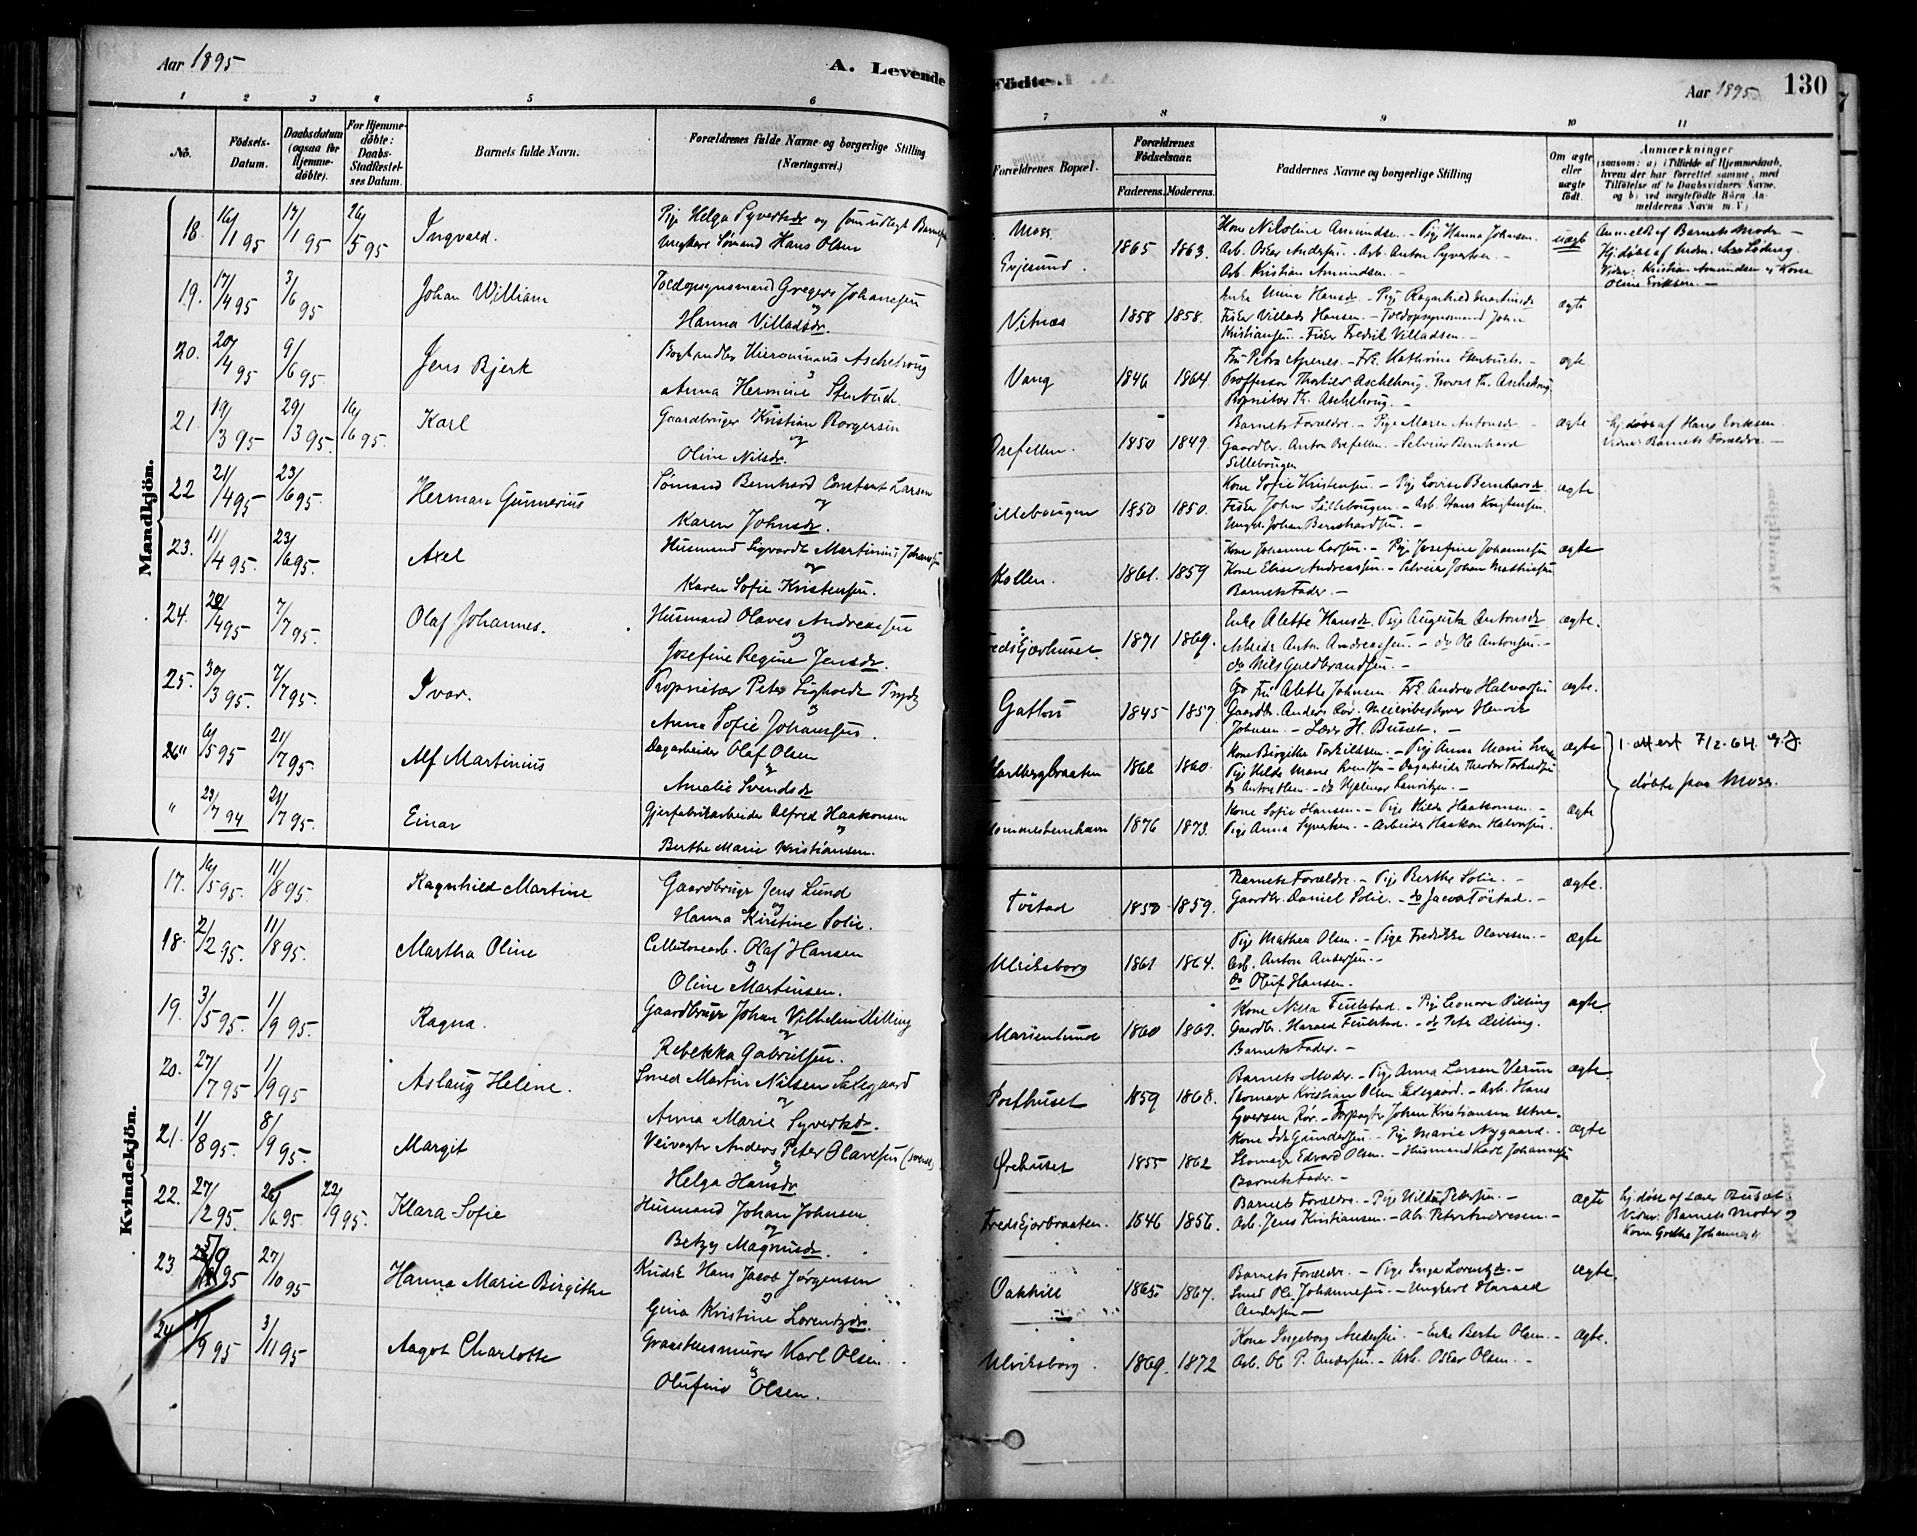 Aar 1895
A. Levende
Födte.
Aar 1895
130
1 2 3 4 5 6 7 8 9 10 11
No.
Födsels-
Datum.
Daabsdatum
(ogsaa for
Hjemme-
döbte).
For Hjemme-
döbte:
Daabs-
Stadfæstel-
ses Datum.
Barnets fulde Navn.
Forældrenes fulde Navne og borgerlige Stilling
(Næringsvei.)
Forældrenes Bopæl.
Forældrenes
Födselsaar.
Faderens. Moderens.
Faddernes Navne og borgerlige Stilling
Om ægte
eller
uægte
födt.
Anmærkninger
(saasom: a) i Tilfælde af Hjemmedaab,
hvem der har forrettet samme, med
Tilföielse af to Daabsvidners Navne,
og b) ved uægtefödte Börn An-
melderens Navn m. V.)
Mandkjön.
18. 16/1 95 17/1 95 26/5 95 Ingvald.
Pige Helga Syvertsdr og som udlagt Barnefader
Ungkarl Sømand Hans Olsen
Moss
Evjesund. 1865 1863.
Kone Nikoline Amundsen. - Pige Hanna Johnsen.
Arb. Oskar Andersen. - Arb. Anton Syvertsen. -
Arb. Kristian Amundsen. -
uægte
Anmeldt af Barnets Moder -
Vidner: Kristian Amundsen og Kone
Oline Eriksen. -
19. 17/4 95 3/6 95 Johan William
Toldopsynsmand Gregers Johansen
og
Hanna Villadsdr.
Vitnæs 1858 1858.
Enke Mina Hansdr - Pige Ragnhild Martinsdr
Fisker Villads Hansen. - Toldopsynsmand John
Kristiansen - Fisker Fredrik Villadsen.
ægte
20. 20/4 95 9/6 95. Jens Bjerk
Boghandler Hieronimus Aschehoug
og
Anna Hermine Stenbuch.
Vang 1846 1864.
Fru Petra Apenes. - Frk. Kathrine Stenbuch. -
Proffessor Thorkild Aschehoug. Provst Th. Aschehoug
Proprietær Th. Aschehoug. -
ægte
21. 19/3 95 29/3 95. 16/6 95. Karl
Gaardbruger Kristian Borgersen
og
Oline Nilsdr.
1850 1849.
Barnets Forældre - Pige Maren Antonsdr -
Gaardbr. Anton Orefellen - Selveier Bernhard
Sillebougen
ægte
Hj.døbt af Hans Eriksen.
Vidner: Barnets Forældre. -
22 21/4 95 23/6 95. Herman Gunnerius
Sømand Bernhard Constant Larsen
og
Karen Johnsdr.
Sillebougen 1850 1850.
Kone Sofie Kristensen - Pige Lovise Bernhardsdr.
Fisker John Sillebougen - Arb. Hans Kristensen.
Ungk. Johan Bernhardsen. -
ægte
23. 11/4 95. 23/6 95. Axel
Husmand Sigvardt Martinius Johansen
og
Karen Sofie Kristensen.
Kollen. 1861. 1859
Kone Johanne Larsen. - Pige Josefine Johannesen
Kone Elise Andreassen - Selveier Johan Mathisen
Barnets Fader. -
ægte
24. /4 95 7/7 95. Olaf Johannes.
Husmand Olaves Andreassen
og
Josefine Regine Jensdr.
1871 1869.
Enke Alette Hansdr. Pige Augusta Antonsdr
Arbeider Anton Andreassen - do Ole Antonsen. -
do Nils Guldbrandsen. -
ægte.
25. 30/3 95 7/7 95. Ivar.
Proprietær Peter Sigholdt
og
Anna Sofie Johansen.
1845 1857
Fru Alette Johnsen. Frk. Andrea Halvorsen
Gaardbr. Anders Rør. Meieribestyrer Henrik
Johnsen. - Lærer H. Busæt. -
ægte.
26 6/5 95 21/7 95. Alf Martinius
Dagarbeider Olaf Olsen
og
Amalie Svendsdr
1862 1860.
Kone Birgithe Torkildsen. - Pige Anna Marie
Pige Hilda Marie Svendsen - Dagarbeider Theodor Torkildsen
ægte
1. attest 7/2.64. E.J.
døbte paa Moss.
" 23/7 94 21/7 95. Einar
Gjærfabrikarbeider Alfred Haakonsen
og
Berthe Marie Kristiansen.
1876 1873.
Kone Sofie Hansen. - Pige Hilda Haakonsen. -
Pige Anna Syvertsen. - Arbeider Haakon Halvorsen.
ægte
Kvindekjön.
17. 16/5 95. 11/8 95. Ragnhild Martine
Gaardbruger Jens Lund
og
Hanna Kirstine Solie.
Tøstad 1850 1859.
Barnets Forældre. - Pige Berthe Solie. -
Gaardbr. Daniel Solie. - do Jacob Tøstad. -
ægte.
18. 2/2 95. 11/8 95. Martha Oline
Cellulosearb. Olaf Hansen
og
Oline Martinsen.
Ulriksborg 1861 1864.
Pige Mathea Olsen. - Pige Fredrikke Olavesen. -
Arb. Anton Andersen. -
do Oluf Hansen.
ægte
19. 3/5 95. 1/9 95. Ragna.
Gaardbruger Johan Vilhelm Dilling
og
Rebekka Gabrielsen.
Marienlund 1860 1863.
Kone Nilla Fuilstad. - Pige Leonora Dilling
Gaardbr. Harald Fuilstad. - do Peter Dilling.
Barnets Fader. -
ægte
20. 27/7 95 1/9 95 Aslaug Helene.
Smed Martin Nilsen
og
Anna Marie Syvertsdr.
Posthuset 1859 1868.
Barnets Moder. - Pige Anna Larsen Værum
Skomager Kristian Olsen - Arb. Hans
Syversen Rør. - Forpagter Johan Kristiansen
ægte.
21. 1/8 95. 8/9 95. Margit
Veivogter Anders Peter Olavesen
og
Helga Hansdr
Ørehuset 1855 1862
Kone Gundersen. - Pige Marie Nygaard. -
Skomager Edvard Olsen. - Husmand Karl Johannesen
Barnets Fader. -
ægte
22. 27/2 95. 26/6 95. 22/9 95. Klara Sofie
Husmand Johan Johnsen.
og
Betzy Magnusdr.
1846 1856.
Barnets Forældre. - Pige Hilda Petersen. -
Arb. Jens Kristiansen. - Arb. Peter Andresen. -
ægte
Hj.døbt af Lærer Busæt
Vidner: Barnets Moder og
Kone Grethe Johannesen
23 5/9 95 27/10 95 Hanna Marie Birgithe
Kudsk Hans Jacob Jørgensen
og
Gina Kristine Lorentzdr.
Oakhill 1865 1867.
Barnets Forældre. - Pige Inga Lorentzdr. -
Smed Ole Johannesen. - Ungkarl Harald
Andersen -
ægte.
24 /9 95 3/11 95 Aagot Charlotte
Graastensmurer Karl Olsen
og
Olufine Olsen.
Ulriksborg. 1869. 1872
Kone Ingeborg Andersen. - Enke Berte Olsen. -
Arb. Ole P. Andersen. - Arb. Oskar Olsen. -
ægte.